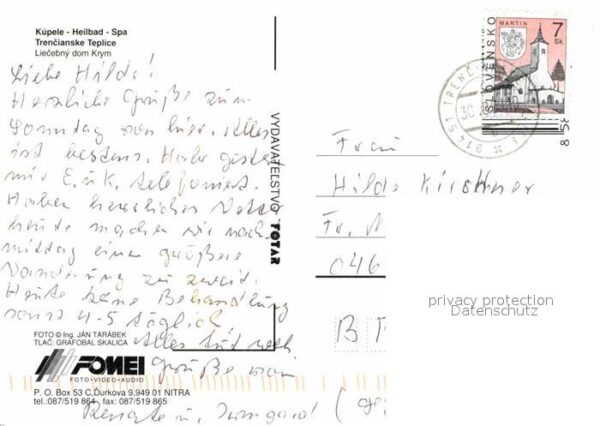 Kúpele - Heilbad - Spa
Trenčianske Teplice
Liečebný dom Krym
Liebe Hilde!
Herzliche Grüße zum
Sonntag von hier. Alles
ist bestens. Habe gestern
mit E. u. K. telefoniert.
Haben herrliches Wetter
heute machen wir nach-
mittag eine größere
Wanderung zu zweit.
Heute keine Behandlung
sonst 4-5 täglich.
Alles Gute noch
Grüße von
Renate u. Irmgard
FOTO © Ing. JÁN TARÁBEK
TLAČ: GRAFOBAL SKALICA
FOMEI
FOTO•VIDEO•AUDIO
P. O. Box 53 C.Ďurkova 9,949 01 NITRA
tel.:087/519 864, fax: 087/519 865
VYDAVATEĽSTVO FOTAR
MARTIN
7
Sk
SLOVENSKO
91451 TRENČ
30
Frau
Hilde Kirschner
Fr.
046
B
privacy protection
Datenschutz